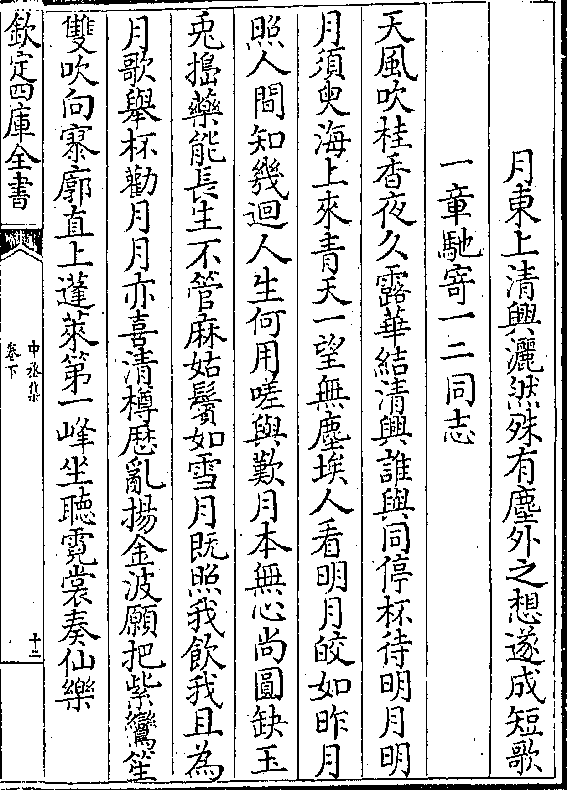 月東上清興灑然殊有塵外之想遂成短歌
一章馳寄一二同志
天風吹桂香夜久露華結清興誰與同停杯待明月明
月須臾海上來青天一望無塵埃人看明月皎如昨月
照人間知幾迴人生何用嗟與歎月本無心尚圓缺玉
兎搗藥能長生不管麻姑鬢如雪月既照我飲我且為
月歌舉杯勸月月亦喜清樽歴亂揚金波願把紫鸞笙
雙吹向寥廓直上蓬萊第一峰坐聴霓裳奏仙樂
欽定四庫全書
中丞集
卷下
十三